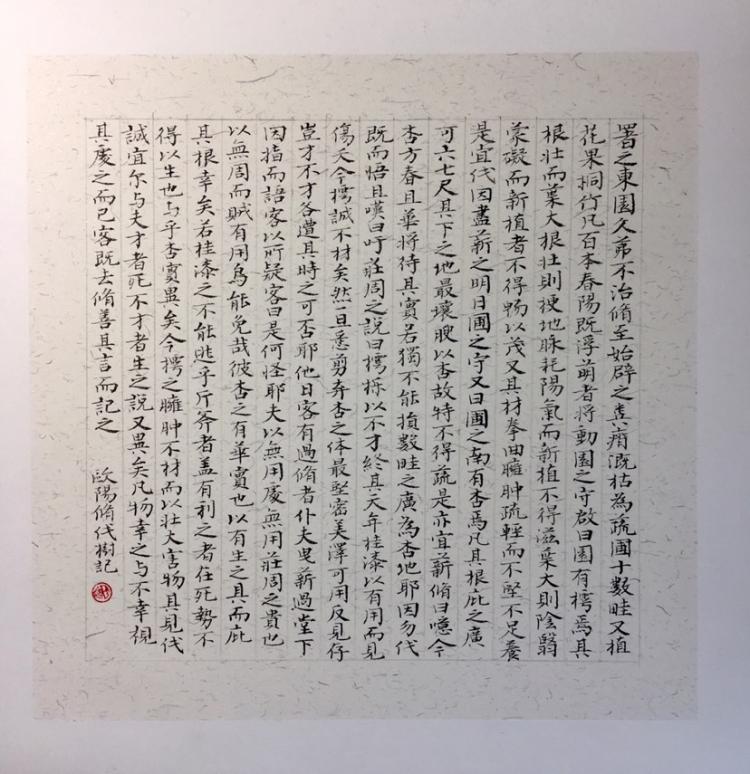 署之東園久茀不治脩至始辟之糞瘠溉枯為蔬圃十數畦又植
花果桐竹凡百本春陽既浮萌者將動園之守啟曰園有樗焉其
根壯而葉大根壯則梗地脉耗陽氣而新植不得滋葉大則陰翳
蒙礙而新植者不得暢以茂又其材拳曲臃肿疏輕而不堅不足養
是宜伐因盡薪之明日圃之守又曰圃之南有杏焉凡其根庇之廣
可六七尺其下之地最壤腴以杏故特不得蔬是亦宜薪脩曰噫今
杏方春且華將待其實若獨不能損數畦之廣為杏地耶因勿伐
既而悟且嘆曰吁莊周之說曰樗櫟以不才終其天年桂漆以有用而見
傷夭今樗誠不材矣然一旦悉剪弃杏之体最堅密美澤可用反見存
豈才不才各遭其時之可否耶他日客有過脩者仆夫曳薪過堂下
因指而語客以所疑客曰是何怪耶夫以無用處無用莊周之貴也
以無用而賊有用烏能免哉彼杏之有華實也以有生之具而庇
其根幸矣若桂漆之不能逃乎斤斧者盖有利之者在死勢不
得以生也与乎杏實異矣今樗之臃肿不材而以壯大害物其見伐
誠宜尔与夫才者死不才者生之說又異矣凡物幸之与不幸視
其處之而已客既去脩善其言而記之 歐陽脩伐樹記